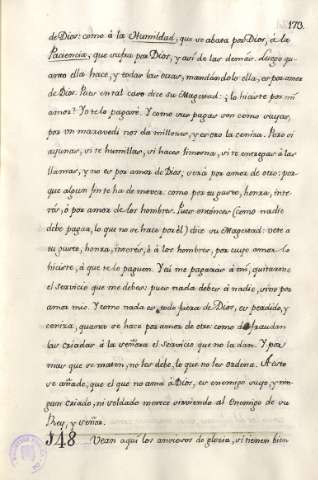 173.
de Dios: como à la Humildad, que se abata por Dios, à la
Paciencia, que sufra por Dios, y asi de las demás. Luego qu-
anto ella hace, y todas las otras, mandándolo ella, es por amor
de Dios. Pues en tal caso dice su Magestad: ¿lo hiciste por mi
amor? Yo te lo pagaré. Y como sus pagas son como suyas,
por un maravedi nos da millones, y es oro la ceniza. Pero si
ayunas, si te humillas, si haces limosna, si te entregas à las
llamas, y no es por amor de Dios, será por amor de otro: por-
que algun fin te ha de mover como por tu gusto, honra, inte-
rés, ó por amor de los hombres. Pues entonces (como nadie
debe pagar, lo que no se hace por él) dice su Magestad: vete a
tu gusto, honra, interés, ó à los hombres, por cuyo amor lo
hiciste, à que te lo paguen. Y
el servicio que me debes; pues nada debes à nadie, sino por
amor mio. Y como nada es, todo fuera de Dios, es perdido, y
ceniza, quanto se hace por amor de otro: como defraudan
las criadas à la señora el servicio que no la dan. Y por
mas que se maten, no les debe, lo que no les ordena. A esto
se añade, que el que no ama à Dios, es enemigo suyo, y nin-
gun criado, ni soldado merece sirviendo al enemigo de su
Rey, y señor.
148 Vean aqui los ansiosos de gloria, si tienen bien